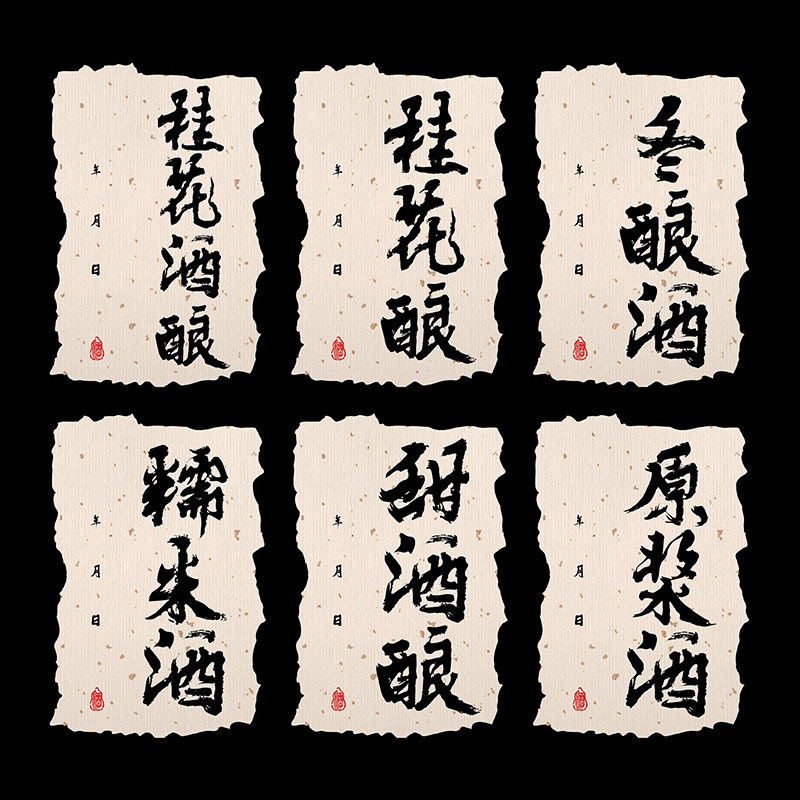 桂花酒酿
年 月 日
桂花酿
年 月 日
冬酿酒
年 月 日
糯米酒
年 月 日
甜酒酿
年 月 日
原浆酒
年 月 日